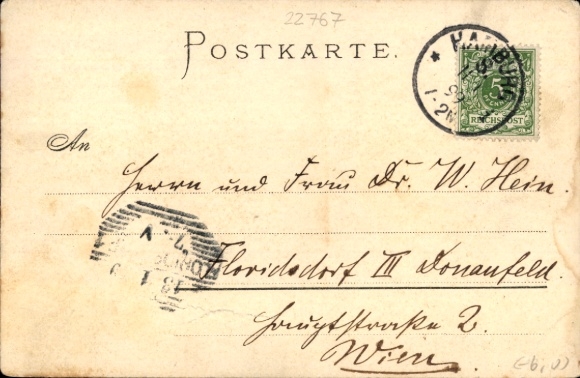 22767
POSTKARTE.
* HAMBURG
1-2N
5
REICHSPOST
An
Herrn und Frau Dr. W. Hein.
Floridsdorf III Donaufeld.
Hauptstraße 2.
Wien.